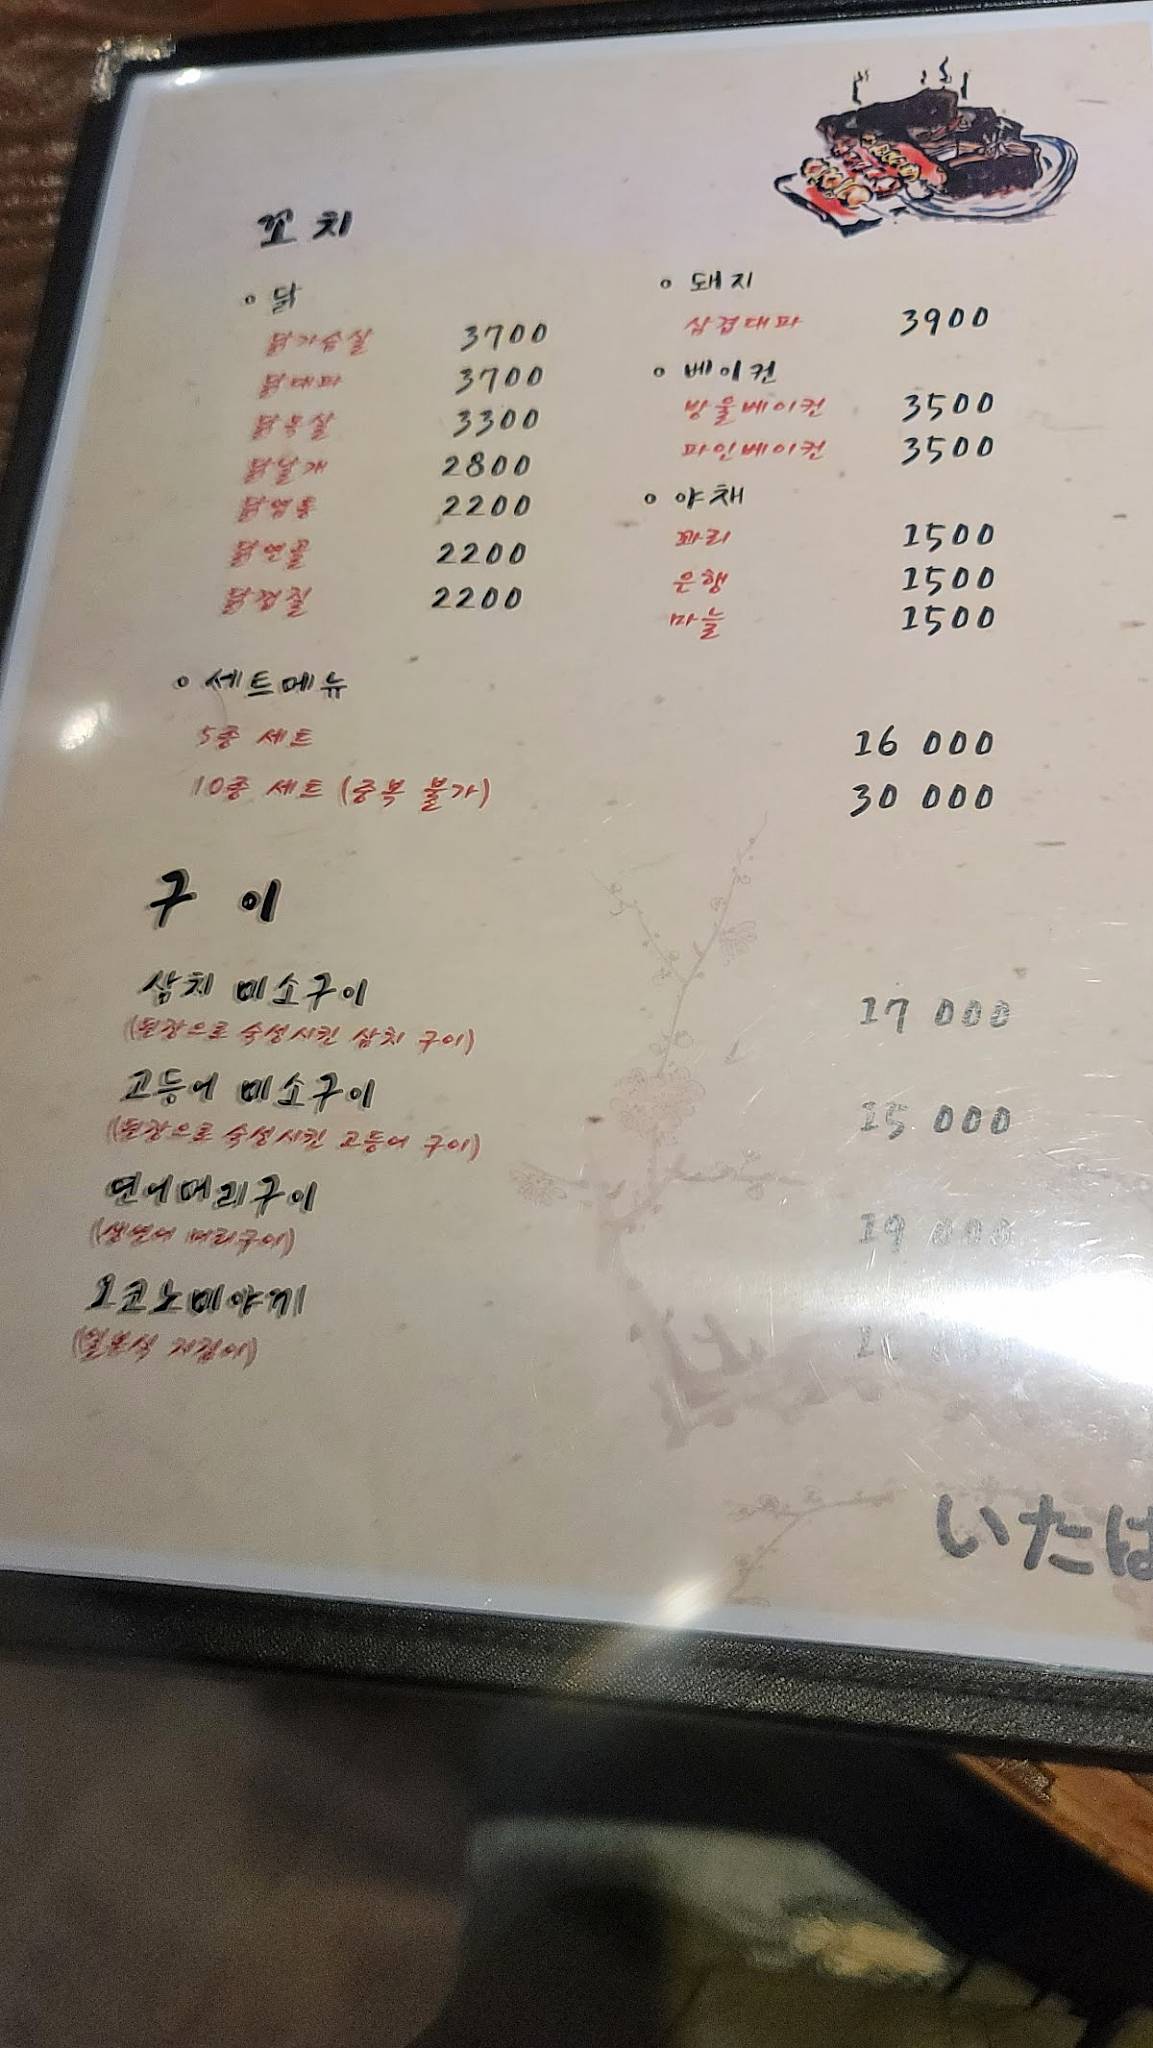 꼬치
o 닭
닭가슴살 3700
닭대파 3700
닭목살 3300
닭날개 2800
닭염통 2200
닭연골 2200
닭껍질 2200
o 돼지
삼겹대파 3900
o 베이컨
방울베이컨 3500
파인베이컨 3500
o 야채
꽈리 1500
은행 1500
마늘 1500
o 세트메뉴
5종 세트 16 000
10종 세트 (중복 불가) 30 000
구 이
삼치 미소구이 17 000
(된장으로 숙성시킨 삼치 구이)
고등어 미소구이 15 000
(된장으로 숙성시킨 고등어 구이)
연어머리구이 19 000
(생연어 머리구이)
오코노미야끼
(일본식 지짐이)
いたは